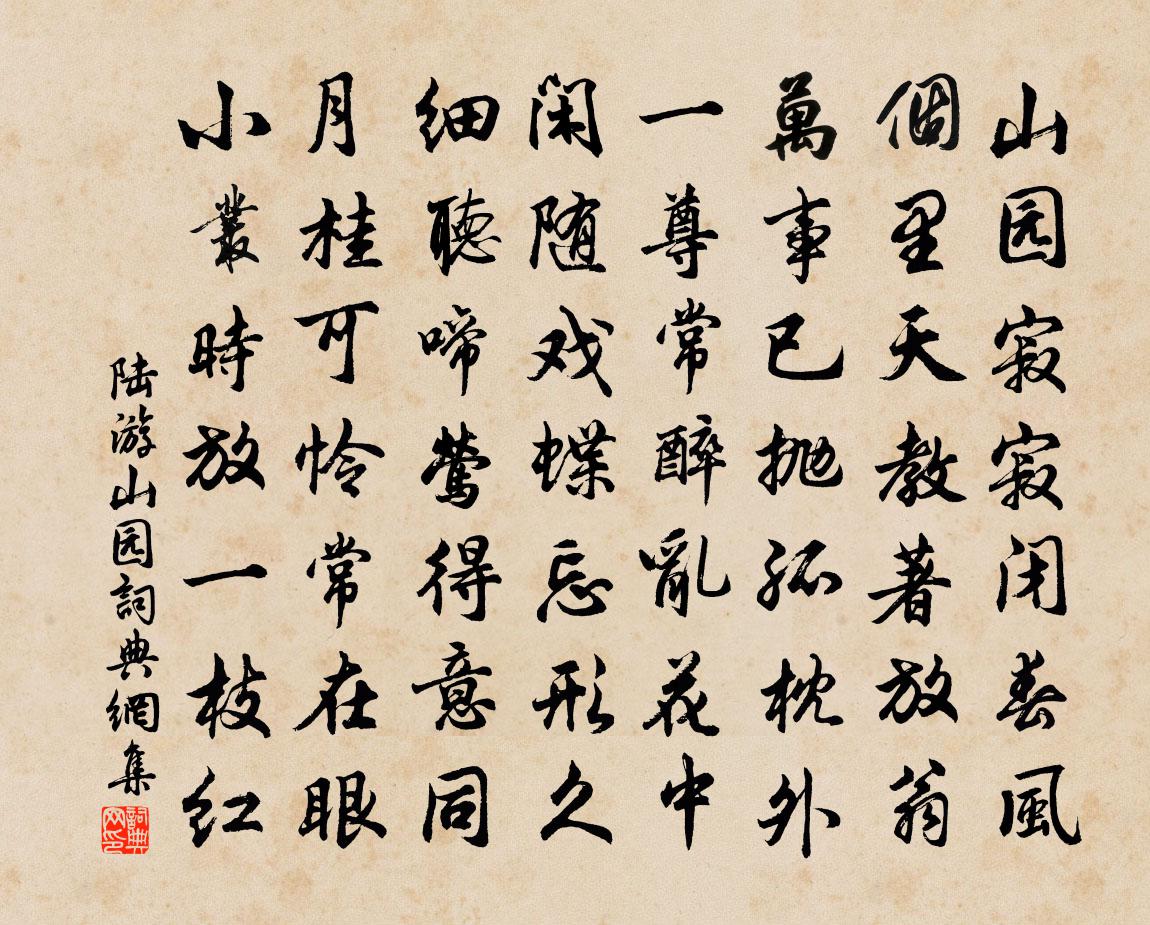 山园寂寂闭春風
個里天教著放翁
萬事已抛孤枕外
一尊常醉亂花中
闲随戏蝶忘形久
細聽啼鶯得意同
月桂可怜常在眼
小叢時放一枝红
陆游山园詞典網集
詞典网印